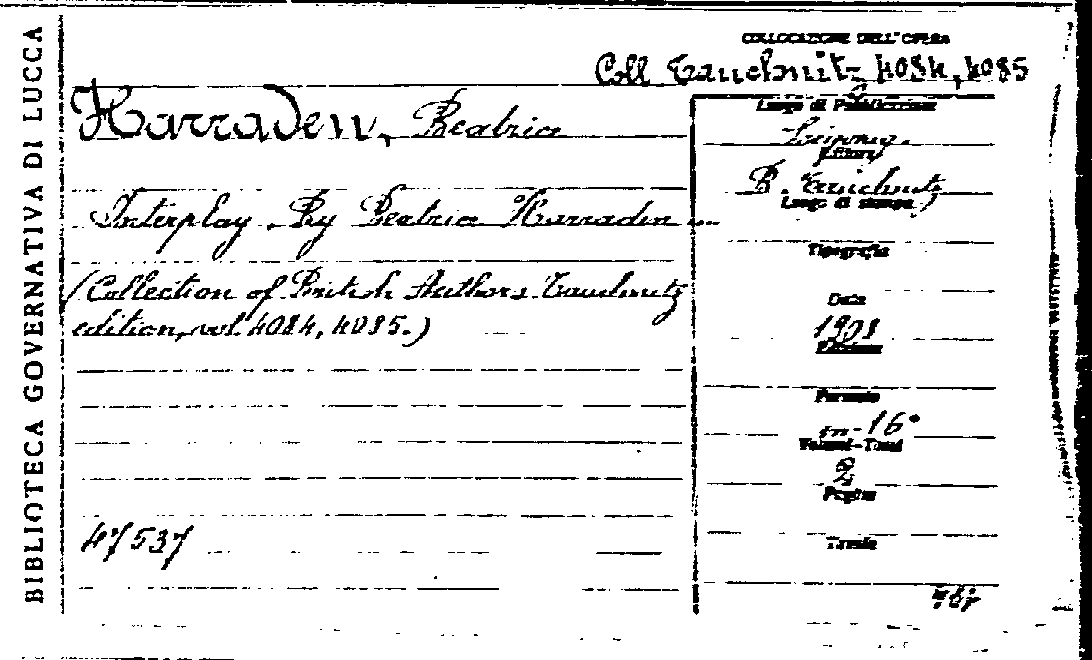 BIBLIOTECA GOVERNATIVA DI LUCCA
COLLOCAZIONE DELL'OPERA
Coll Tauchnitz 4084, 4085
Harraden, Beatrice
Interplay. By Beatrice Harraden ...
(Collection of British Authors Tauchnitz
edition, vol. 4084, 4085.)
47537
Luogo di Pubblicazione
Leipzig.
Editore
B. Tauchnitz
Luogo di stampa
Tipografia
Data
1908
Edizione
Formato
in-16°
Volumi-Tomi
2
Pagine
Tavole